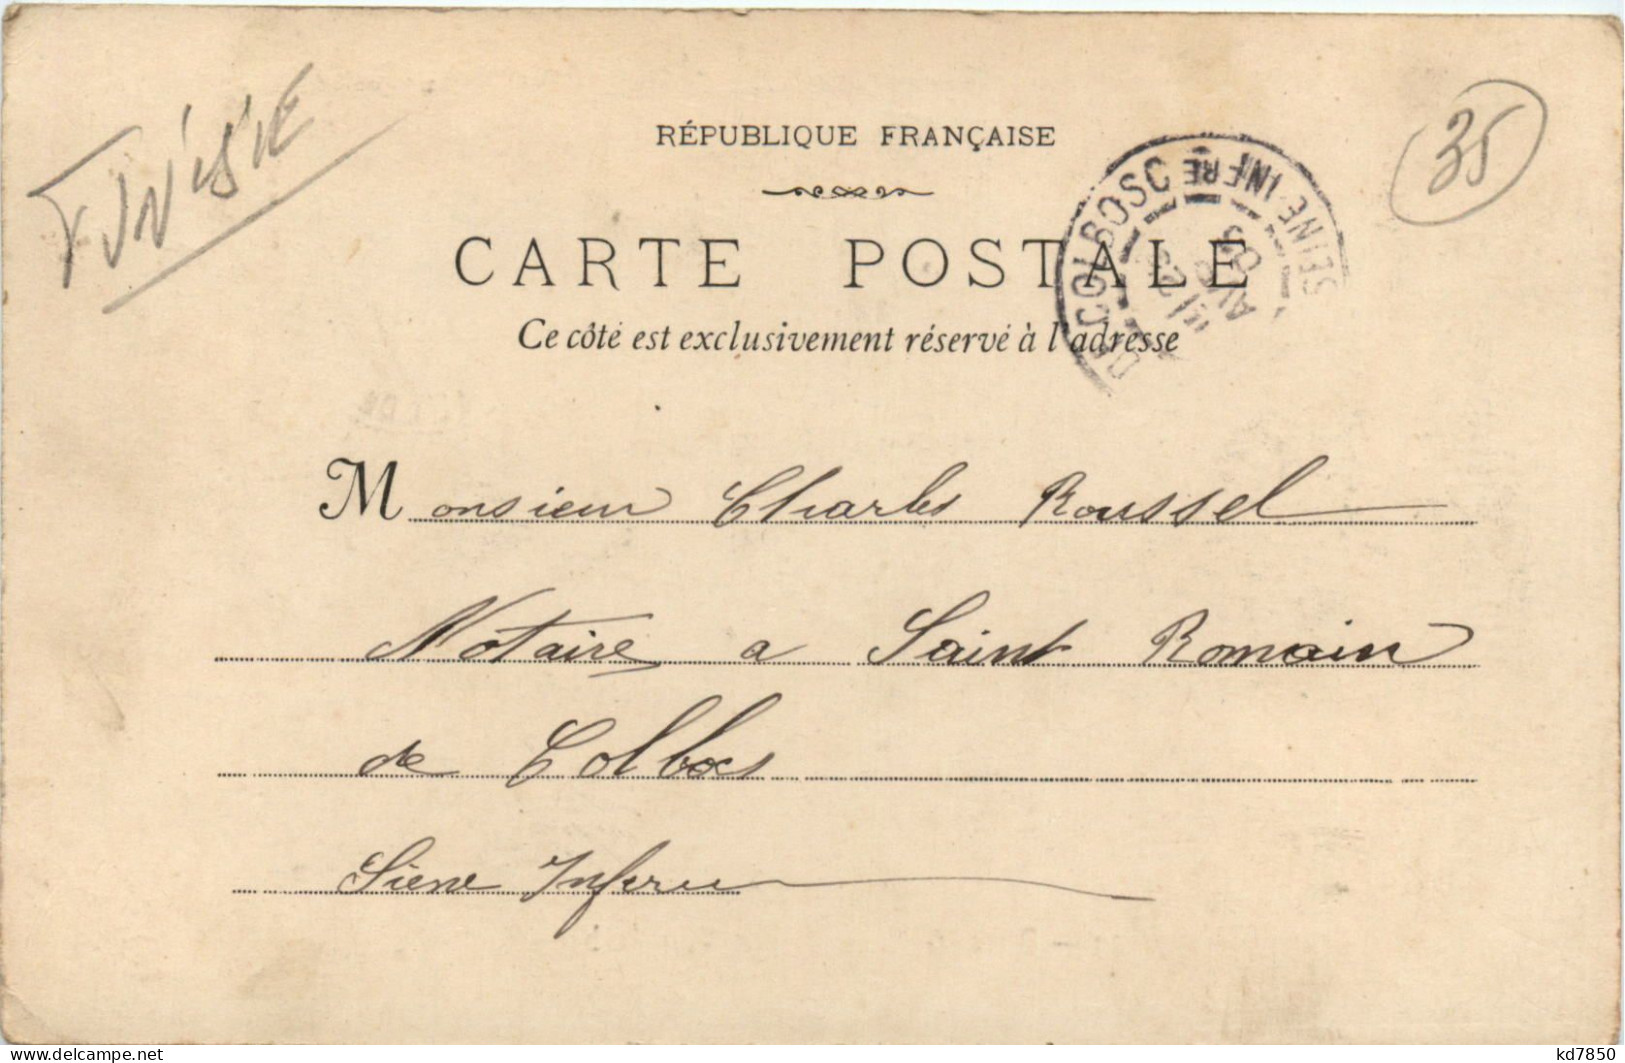 Tunisie
35
RÉPUBLIQUE FRANÇAISE
CARTE POSTALE
Ce côté est exclusivement réservé à l'adresse
DE COLBOSC SEINE-INFRE
AVR
03
Monsieur Charles Roussel
Notaire a Saint Romain
de Colbocs
Siene Inferu
kd7850